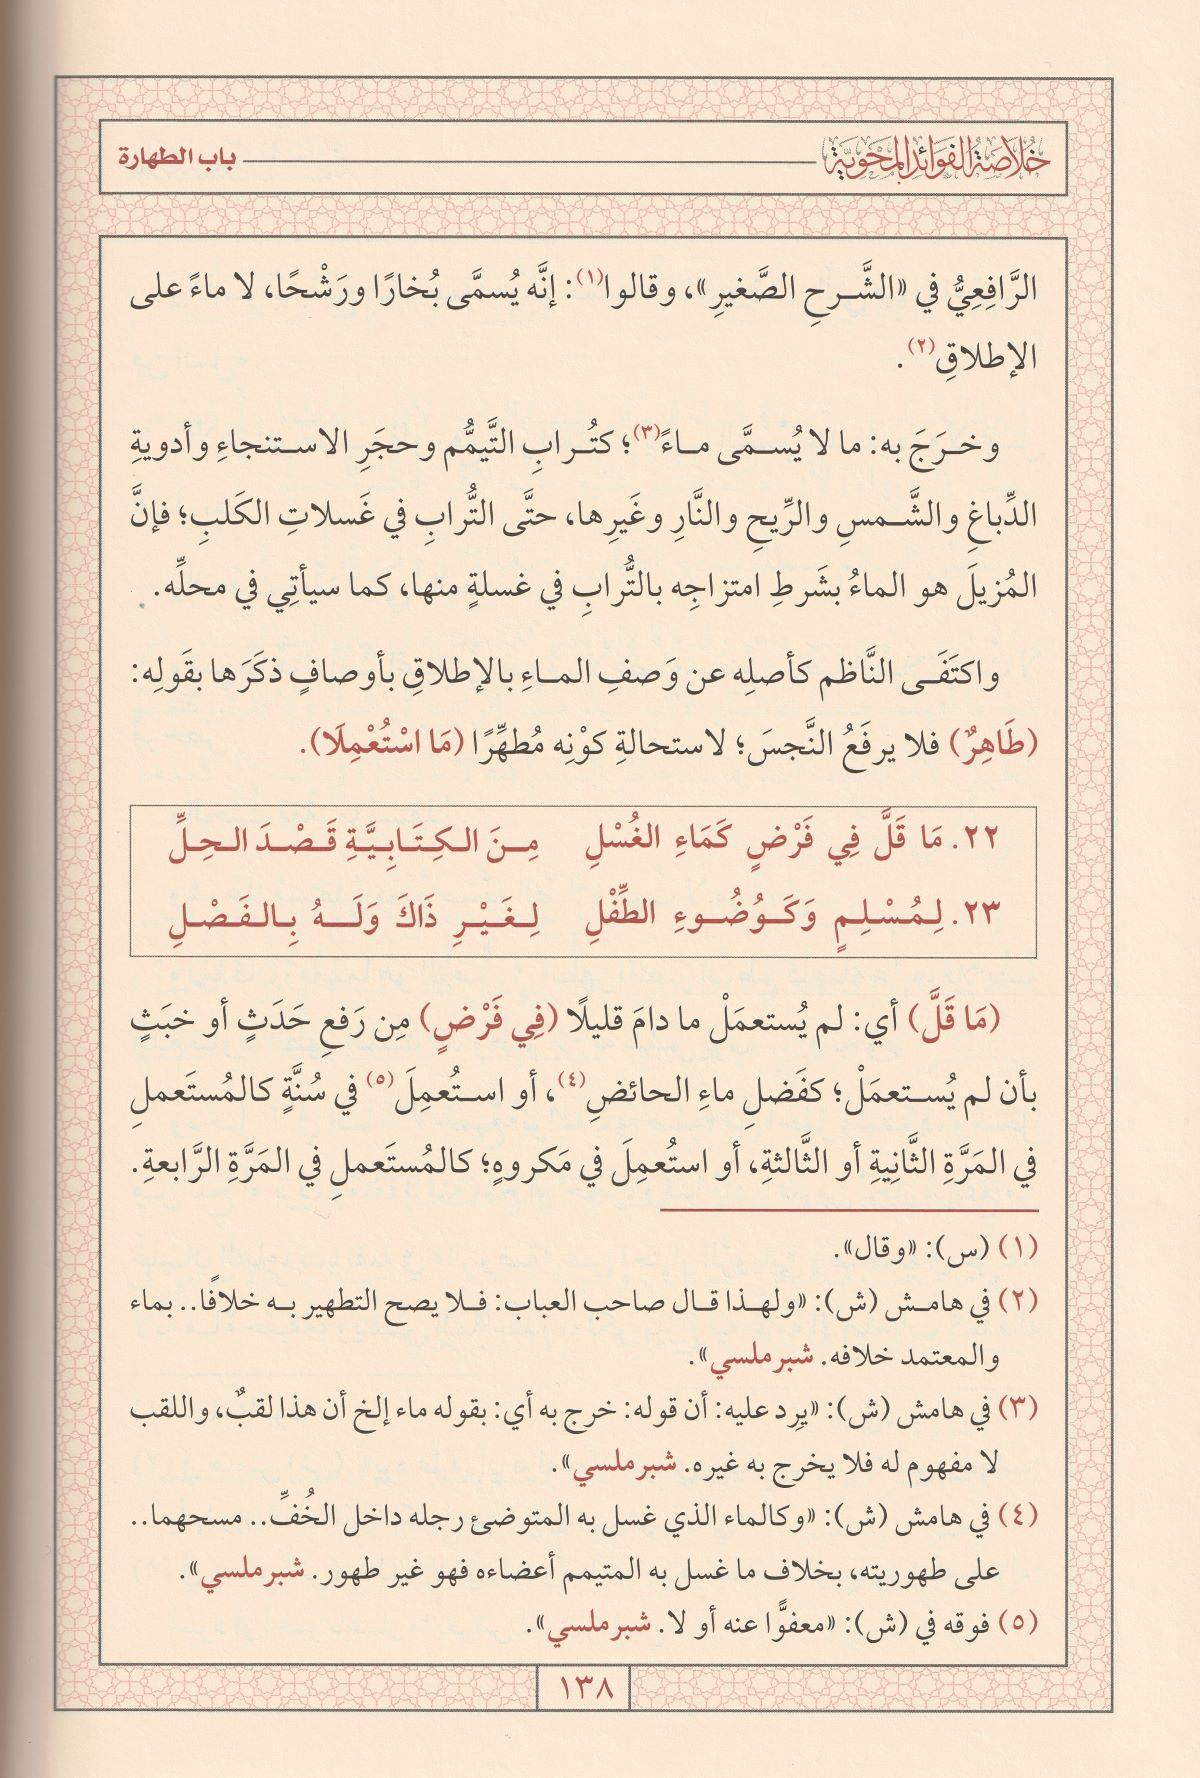 خُلَاصَةُ الفَوَائِدِ المَحْوِيَّةِ
باب الطهارة
الرَّافِعِيُّ في «الشَّرحِ الصَّغيرِ»، وقالوا(١): إنَّه يُسمَّى بُخارًا ورَشْحًا، لا ماءً على
الإطلاقِ(٢).
وخرَجَ به: ما لا يُسمَّى ماءً(٣)؛ كتُرابِ التَّيمُّم وحجَرِ الاستنجاءِ وأدويةِ
الدِّباغِ والشَّمسِ والرِّيحِ والنَّارِ وغَيرِها، حتَّى التُّرابِ في غَسلاتِ الكَلبِ؛ فإنَّ
المُزيلَ هو الماءُ بشَرطِ امتزاجِه بالتُّرابِ في غسلةٍ منها، كما سيأتِي في محلِّه.
واكتَفَى النَّاظم كأصلِه عن وَصفِ الماءِ بالإطلاقِ بأوصافٍ ذكَرَها بقَولِه:
(طَاهِرٌ) فلا يرفَعُ النَّجسَ؛ لاستحالةِ كوْنِه مُطهِّرًا (مَا اسْتُعْمِلَا).
٢٢. مَا قَلَّ فِي فَرْضٍ كَمَاءِ الغُسْلِ مِنَ الكِتَابِيَّةِ قَصْدَ الحِلِّ
٢٣. لِمُسْلِمٍ وَكَوُضُوءِ الطِّفْلِ لِغَيْرِ ذَاكَ وَلَهُ بِالفَضْلِ
(مَا قَلَّ) أي: لم يُستعمَلْ ما دامَ قليلًا (فِي فَرْضٍ) مِن رَفعِ حَدَثٍ أو خبَثٍ
بأن لم يُستعمَلْ؛ كفَضلِ ماءِ الحائضِ(٤)، أو استُعمِلَ(٥) في سُنَّةٍ كالمُستَعملِ
في المَرَّةِ الثَّانِيةِ أو الثَّالثةِ، أو استُعمِلَ في مَكروهٍ؛ كالمُستَعملِ في المَرَّةِ الرَّابعةِ.
(١) (س): «وقال».
(٢) في هامش (ش): «ولهذا قال صاحب العباب: فلا يصح التطهير به خلافًا.. بماء
والمعتمد خلافه. شبرملسي».
(٣) في هامش (ش): «يرِد عليه: أن قوله: خرج به أي: بقوله ماء إلخ أن هذا لقبٌ، واللقب
لا مفهوم له فلا يخرج به غيره. شبرملسي».
(٤) في هامش (ش): «وكالماء الذي غسل به المتوضئ رجله داخل الخُفِّ.. مسحهما..
على طهوريته، بخلاف ما غسل به المتيمم أعضاءه فهو غير طهور. شبرملسي».
(٥) فوقه في (ش): «معفوًّا عنه أو لا. شبرملسي».
١٣٨